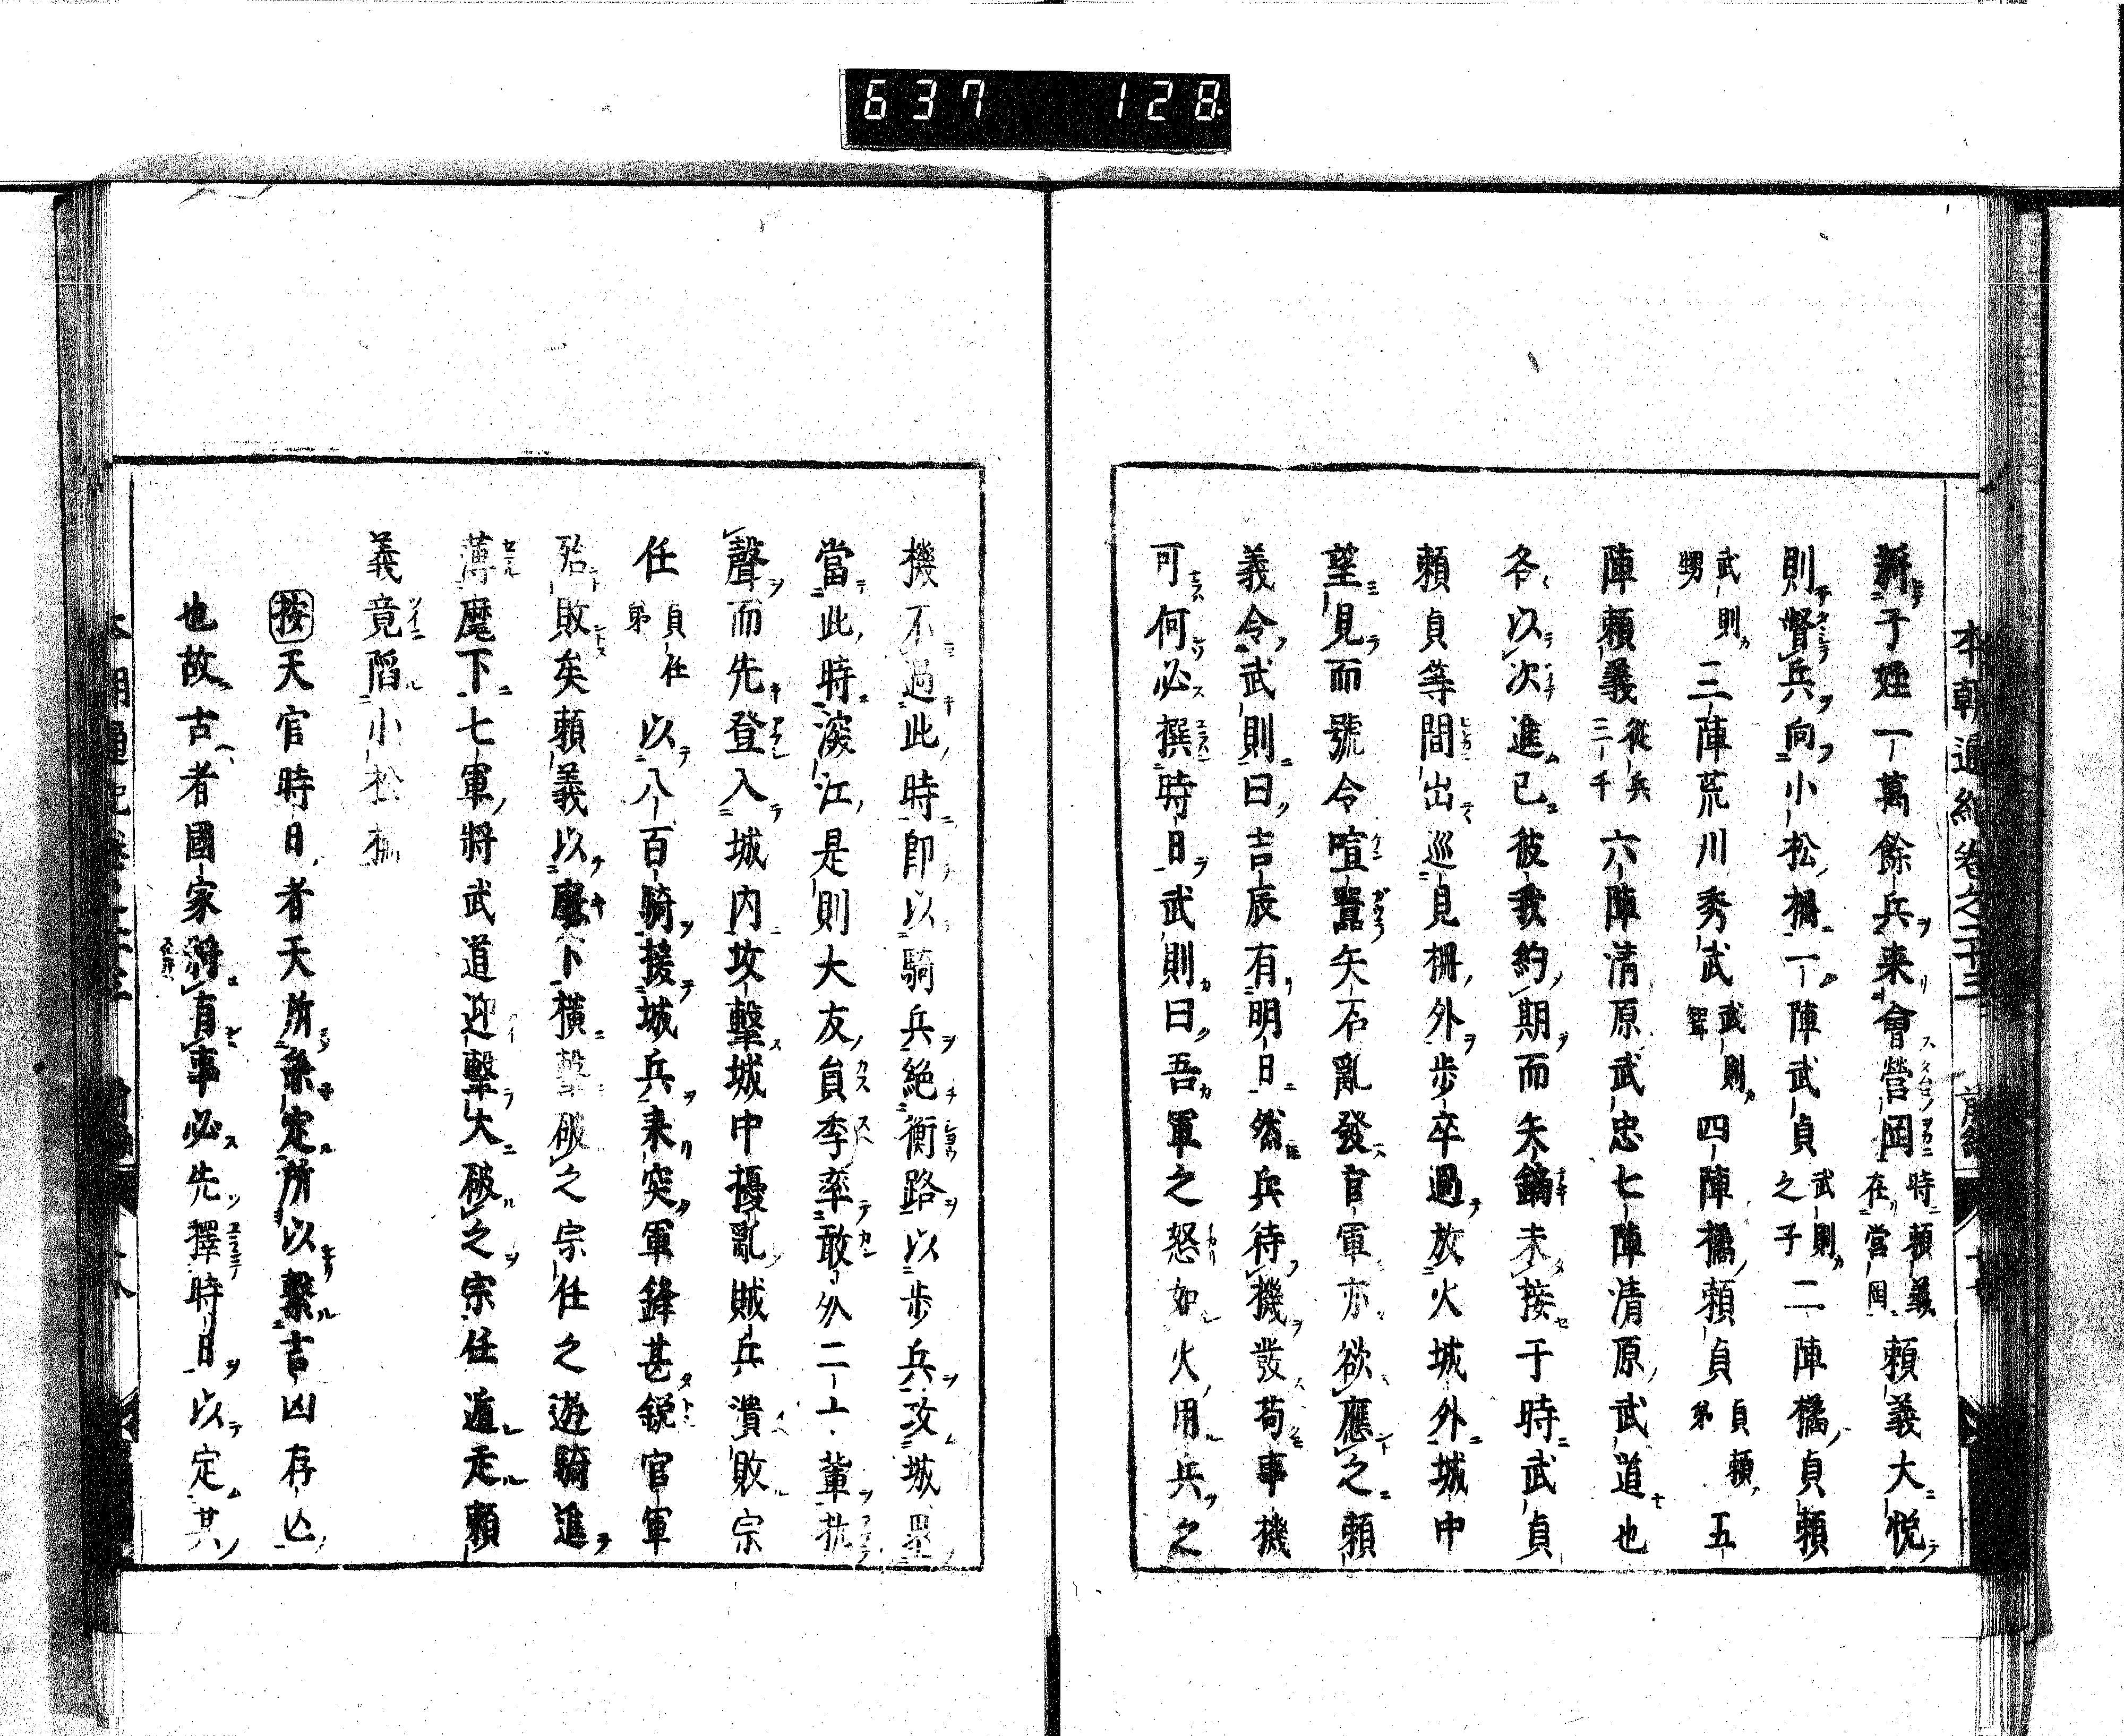 637 128
本朝通紀卷之二十三 前編 十七
率子姪一萬餘兵來會營岡時頼義在營岡頼義大悅
則督兵向小松柵一陣武貞武則之子二陣橘貞頼
武則甥三陣荒川秀武武則聟四陣橘頼貞貞頼弟五
陣頼義從兵三千六陣清原武忠七陣清原武道也
各以次進已彼我約期而矢鏑未接于時武貞
頼貞等間出巡見柵外歩卒過放火城外城中
望見而號令喧囂矢石亂發官軍亦欲應之頼
義令武則曰吉辰有明日然兵待機發苟事機
可何必撰時日武則曰吾軍之怒如火用兵之
機不過此時卽以騎兵絶衝路以歩兵攻城壘
當此時深江是則大友員季率敢死二十輩抗
聲而先登入城内攻擊城中擾亂賊兵潰敗宗
任貞任弟以八百騎接城兵來突軍鋒甚銳官軍
殆敗矣頼義以麾下橫擊破之宗任之遊騎進
薄麾下七軍將武道迎擊大破之宗任遁走頼
義竟陷小松柵
按天官時日者天所命定所以繫吉凶存亾
也故古者國家將有事必先擇時日以定其